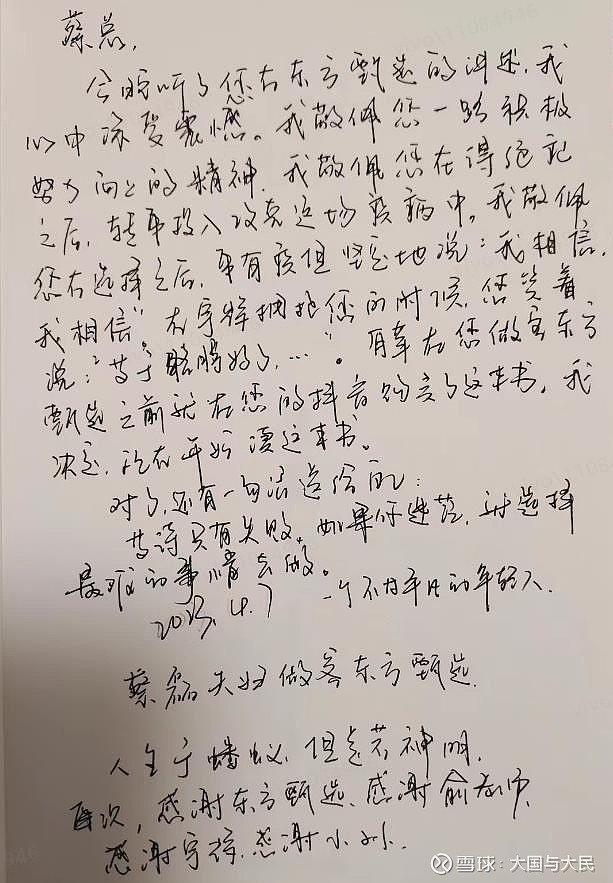 蔡总，
今晚听了您在东方甄选的讲述，我
心中深受震撼。我敬佩您一路积极
努力向上的精神，我敬佩您在得绝症
之后，转身投入攻克这场疾病中，我敬佩
您在选择之后，身有疾但坚定地说：我相信，
我相信。在宇辉拥抱您的时候，您笑着
说：“等于胳膊好了，…”。有幸在您做客东方
甄选之前就在您的抖音购买了这本书，我
决定，现在开始读这本书。
对了，还有一句话送给我：
等待只有失败。如果你选苦，就选择
最难的事情去做。
2023.4.7 一个不甘平凡的年轻人
蔡磊夫妇做客东方甄选
人生于蝼蚁，但当若神明，
再次，感谢东方甄选、感谢俞老师、
感谢宇辉，感谢小孙
雪球：大国与大民